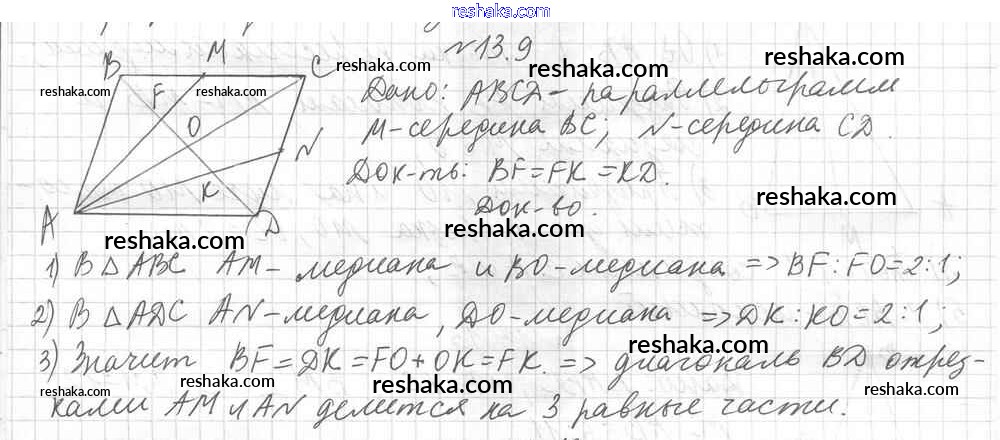 reshaka.com
№13.9
B M C
reshaka.com reshaka.com reshaka.com reshaka.com
reshaka.com F reshaka.com Дано: ABCD - параллелограмм
O M-середина BC; N-середина CD.
reshaka.com reshaka.com
N Док-ть: BF=FK=KD.
K reshaka.com
Док-во.
A D reshaka.com
reshaka.com
1) В △ABC AM - медиана и BO-медиана => BF:FO=2:1;
reshaka.com
2) В △ADC AN-медиана, DO-медиана => DK:KO=2:1;
reshaka.com
3) Значит BF=DK=FO+OK=FK. => диагональ BD отрез-
reshaka.com
reshaka.com reshaka.com
ками AM и AN делится на 3 равные части.
reshaka.com